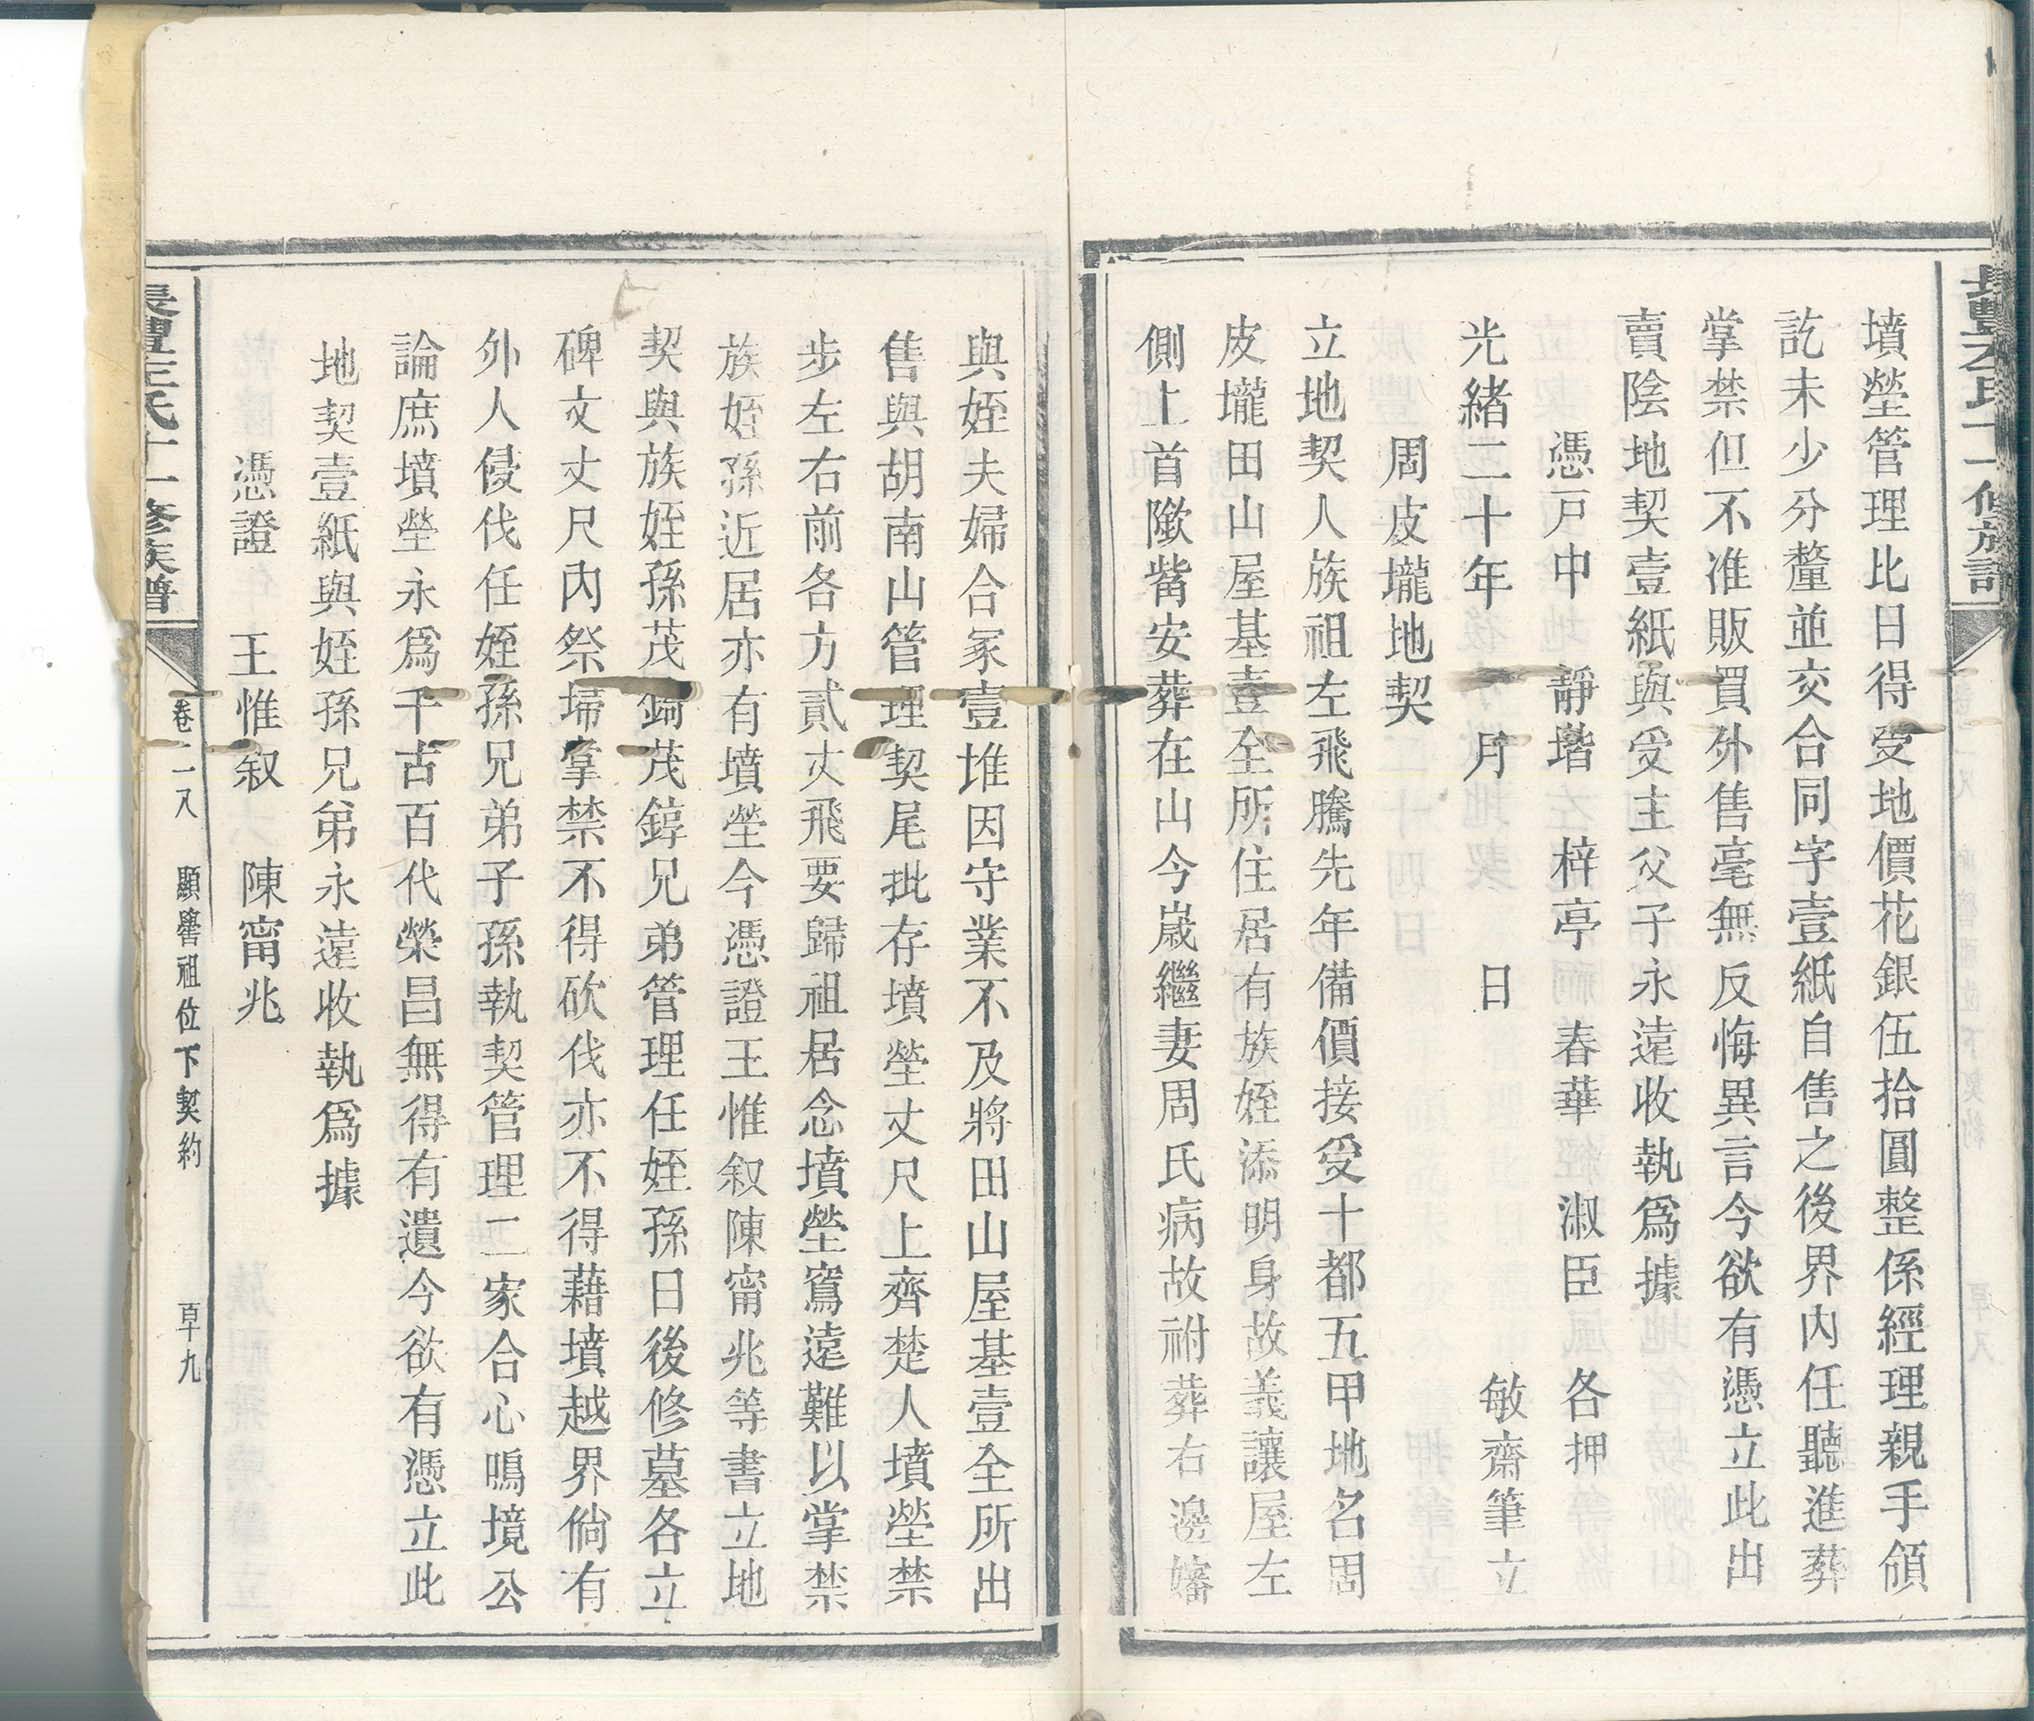 長豐左氏十一修族譜
墳塋管理比日得受地價花銀伍拾圓整係經理親手領
訖未少分釐並交合同字壹紙自售之後界內任聽進葬
掌禁但不准販買外售毫無反悔異言今欲有憑立此出
賣陰地契壹紙與受主父子永遠收執為據
憑戶中 靜堦 梓亭 春華 淑臣 各押
光緒二十年 月 日 敏齋筆立
周皮壠地契
立地契人族祖左飛騰先年備價接受十都五甲地名周
皮壠田山屋基壹全所住居有族姪添明身故義讓屋左
側上首隞觜安葬在山今嵗繼妻周氏病故祔葬右邊嬸
與姪夫婦合冢壹堆因守業不及將田山屋基壹全所出
售與胡南山管理契尾批存墳塋丈尺上齊楚人墳塋禁
步左右前各方貳丈飛要歸祖居念墳塋窵遠難以掌禁
族姪孫近居亦有墳塋今憑證王惟叙陳甯兆等書立地
契與族姪孫茂錡茂錞兄弟管理任姪孫日後修墓各立
碑文丈尺內祭埽掌禁不得砍伐亦不得藉墳越界倘有
外人侵伐任姪孫兄弟子孫執契管理二家合心鳴境公
論庶墳塋永為千古百代榮昌無得有遺今欲有憑立此
地契壹紙與姪孫兄弟永遠收執為據
憑證 王惟叙 陳甯兆
長豐左氏十一修族譜 卷二八 顯譽祖位下契約 百十九